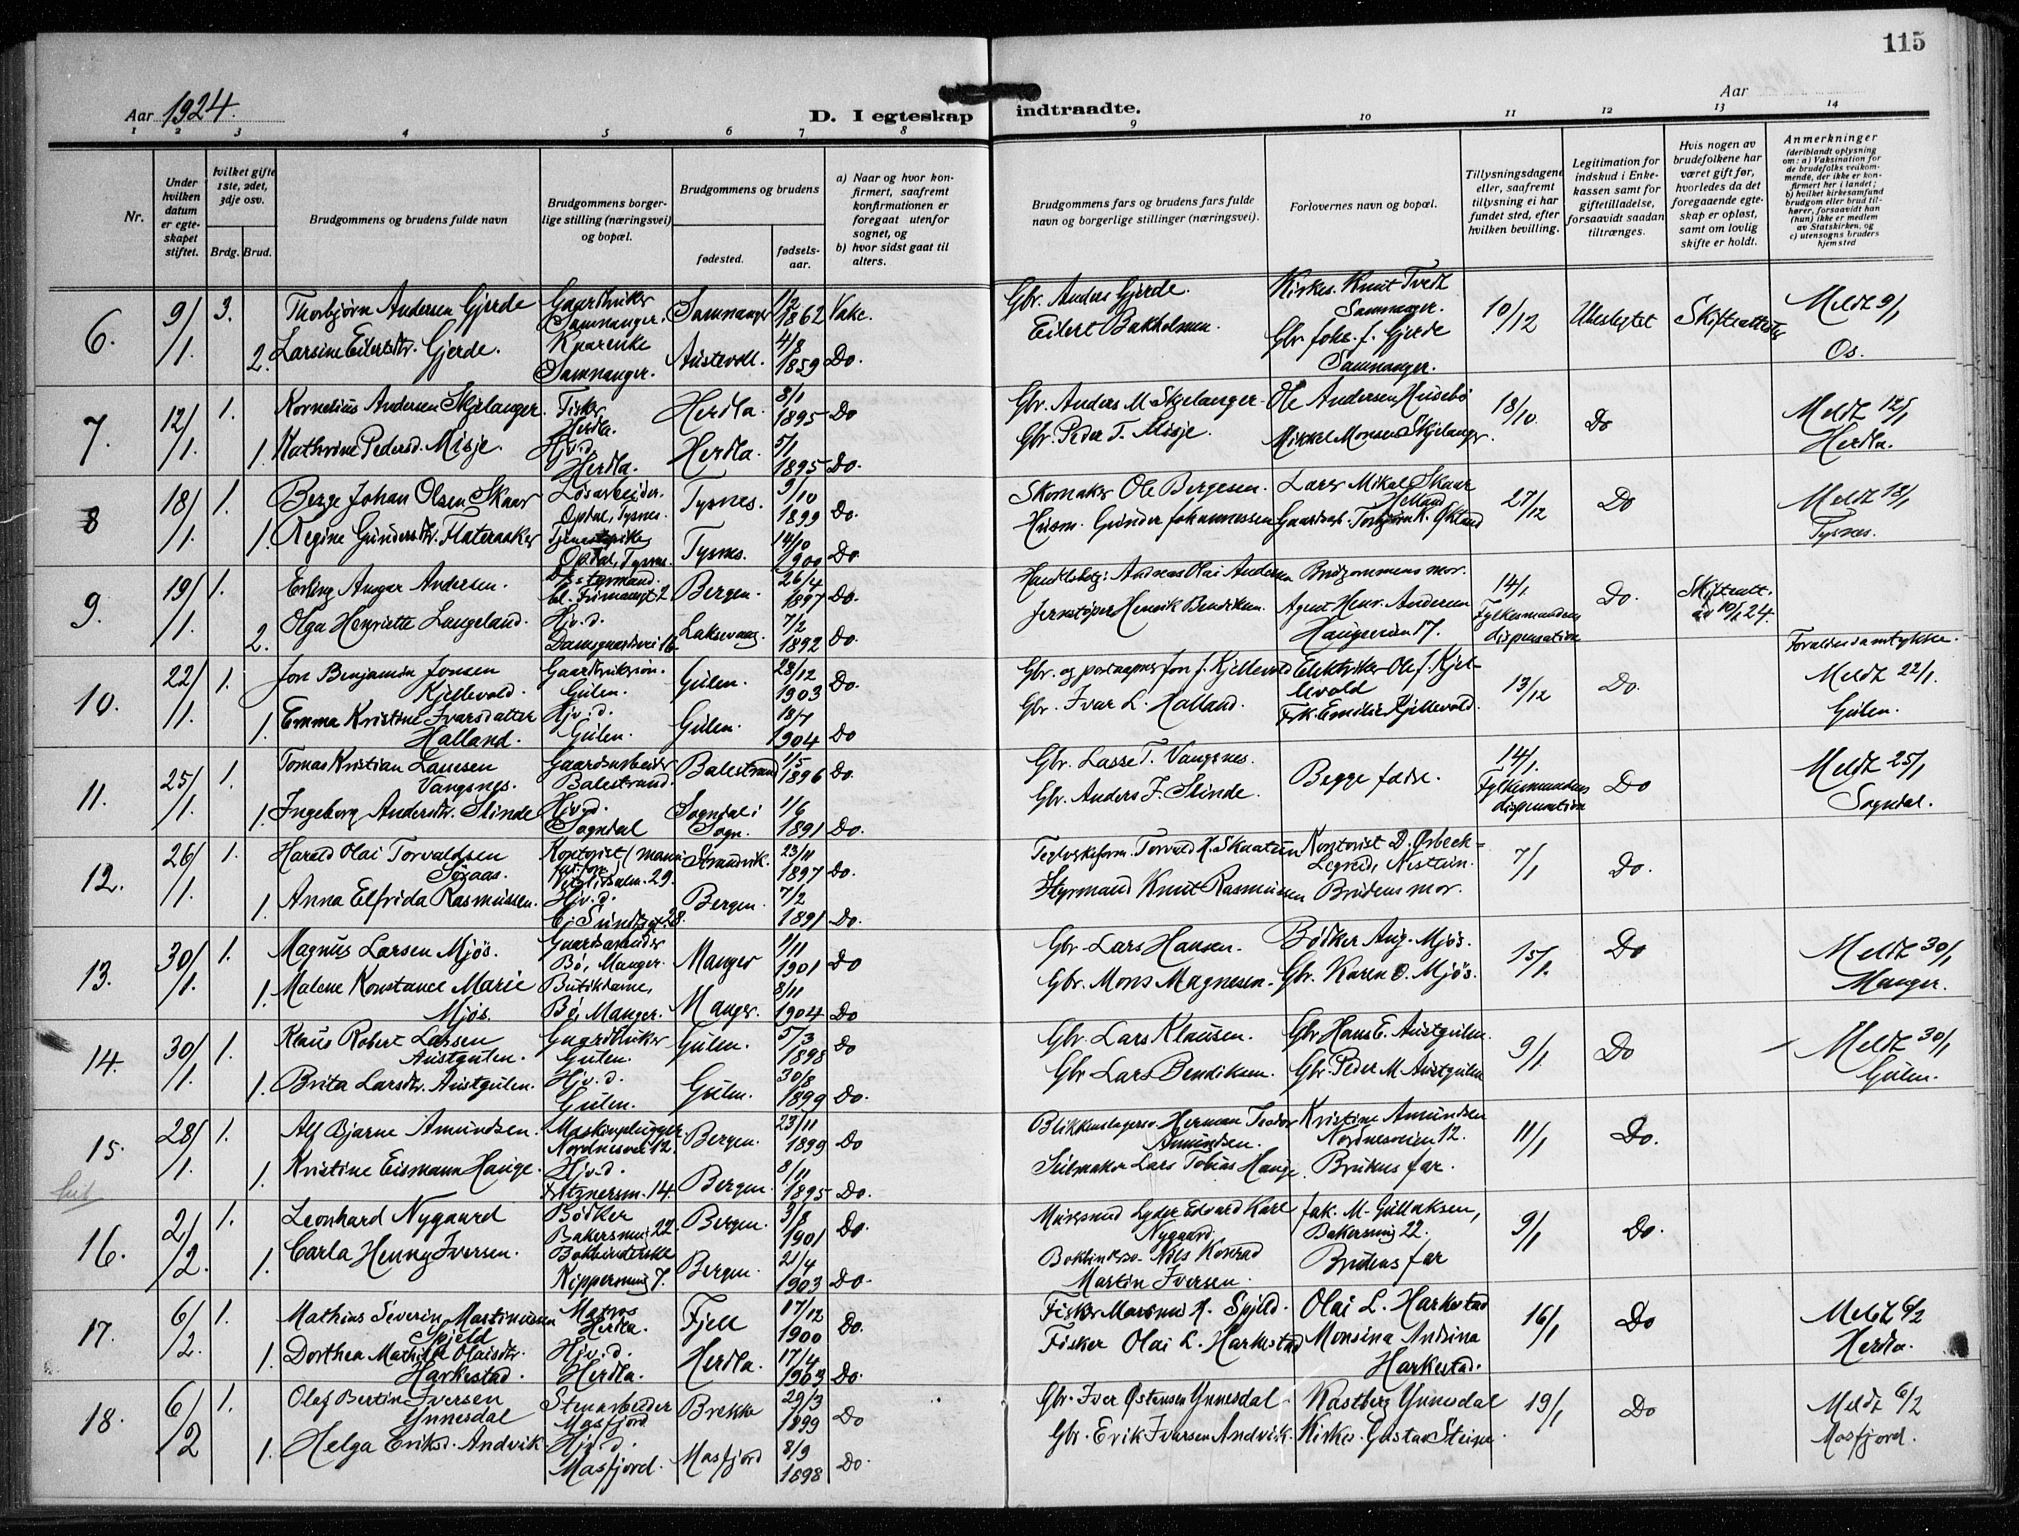 115
Aar 1924.
D. I egteskap indtraadte.
Aar
1 2 3 4 5 6 7 8 9 10 11 12 13 14
Nr.
Under hvilken datum er egteskapet stiftet.
hvilket gifte 1ste, 2det, 3dje osv.
Brdg. Brud.
Brudgommens og brudens fulde navn
Brudgommens borgerlige stilling (næringsvei) og bopæl.
Brudgommens og brudens
fødested.
fødselsaar.
a) Naar og hvor konfirmert, saafremt konfirmationen er foregaat utenfor sognet, og
b) hvor sidst gaat til alters.
Brudgommens fars og brudens fars fulde navn og borgerlige stillinger (næringsvei).
Forlovernes navn og bopæl.
Tillysningsdagene eller, saafremt tillysning ei har fundet sted, efter hvilken bevilling.
Legitimation for indskud i Enkekassen samt for giftetilladelse, forsaavidt saadan tiltrænges.
Hvis nogen av brudefolkene har været gift før, hvorledes da det foregaaende egteskap er opløst, samt om lovlig skifte er holdt.
Anmerkninger
(deriblandt oplysning om: a) Vaksination for de brudefolks veikommende, der ikke er konfirmert her i landet; b) hvilket kirkesamfund brudgom eller brud tilhører, forsaavidt han (hun) ikke er medlem av Statskirken, og c) utensogns bruders hjemsted
6. 9/1 3. Thorbjørn Andersen Gjerde Gaardbruker Samnanger. Samnanger 1/2 1862 Vake. Gbr. Anders Gjerde. Kirkes. Knut Tvedt Samnanger. 10/12 Ubeslegtet Skifteattest Meldt 9/1 Os.
2. Larsine Eilertsdtr. Gjerde. Samnanger. Austevoll. 4/8 1859 Do. Eilert Bakholmen. Gbr Johs. J. Gjerde Samnanger.
7. 12/1 1. Kornelius Andersen Skjelanger. Fisker Herdla. Herdla. 8/1 1895 Do Gbr. Anders M Skjelanger Ole Andersen Husebø 18/10. Do Meldt 12/1 Herdla.
1. Kathrine Pedersd. Misje. Hjv.d. Herdla. Herdla. 5/1 1895 Do. Gbr. Peder T. Misje. Mikkel Monsen Skjelanger
8 18/1 1. Berge Johan Olsen Skaar Løsarbeider. Opdal, Tysnes. Tysnes. 9/10 1899 Do. Skomaker Ole Bergesen. Lars Mikal Skaar 27/12 Do Meldt 18/1 Tysnes.
1. Regine Gundersdtr. Flateraaker Opdal, Tysnes. Tysnes. 14/10 1900 Do Husm. Gunder Johannessen Gaardbr. Torbjørn K. Økland
9. 19/1 1. Erling Ansgar Andersen. Styrmand. Bergen. 26/4 1897 Do. Andreas Olai Andersen Brudgommens mor. 14/1. Fylkesmandens dispensation Do. Skifteatt. av 10/1 24.
2. Olga Henriette Langeland. Hjv.d. Damsgaardsvei 16 Laksevaag. 7/2 1892 Do. Jernstøper Henrik Bendiksen. Agent Henr. Andersen Haugeveien 17.
10. 22/1 1. Jon Benjamin Jonsen Kjellevold. Gaardbrukersøn. Gulen. Gulen. 23/12 1903 Do. Gbr. og postaapner Jon J. Kjellevold Elektriker Ole J. Kjellevold 13/12 Do. Foreldres samtykke. Meldt 22/1. Gulen.
1. Emma Kristine Ivarsdatter Halland. Hjv.d. Gulen. Gulen. 18/7 1904 Do Gbr. Ivar L. Halland. Frk. Emilie Kjellevold.
11. 25/1 1. Tomas Kristian Lassesen Vangsnes. Gaardsarbeider Balestrand. Balestrand 1/5 1896 Do. Gbr. Lasse T. Vangsnes. Begge fædre. 14/1. Fylkesmandens dispensation Do Meldt 25/1 Sogndal.
1. Ingeborg Andersdtr. Slinde Hjv.d. Sogndal Sogndal i Sogn. 1/6 1891 Do. Gbr. Anders J. Slinde.
12. 26/1 1. Harald Olai Torvaldsen Søraas. Kontorist Strandvik. 23/11 1897 Do. Torvald H. Skaatun Kontorist D. Ørbeck- Legred, Nestun. 7/1 Do.
1. Anna Elfrida Rasmussen. Hjv.d. Ej. Sundtsgt. 28. Bergen. 7/2 1891 Do. Styrmand Knut Rasmussen Brudens mor.
13. 30/1 1. Magnus Larsen Mjøs. Gaardsarbeider Bø, Manger. Manger 1/11 1901 Do Gbr. Lars Hansen. Bødker Aug. Mjøs. 15/1. Do Meldt 30/1 Manger.
1. Malene Konstance Marie Mjøs. Butikdame, Bø, Manger. Manger. 8/11 1904 Do Gbr. Mons Magnesen. Gbr. Karen O. Mjøs.
14. 30/1 1. Klaus Robert Larsen Austgulen. Gaardbruker Gulen. Gulen. 5/3 1898 Do Gbr. Lars Klausen. Gbr Hans E. Austgulen. 9/1 Do Meldt 30/1 Gulen.
1. Brita Larsdtr. Austgulen. Hjv.d. Gulen. Gulen. 30/8 1899 Do. Gbr Lars Bendiksen. Gbr. Peder M Austgulen
15. 28/1 1. Alf Bjarne Amundsen. Maskinplugger Nordnesvei 12. Bergen. 23/11 1899 Do Blikkenslagersv. Herman Teodor Amundsen. Kristine Amundsen Nordnesveien 12. 11/1 Do.
1. Kristine Eismann Hauge. Hjv.d. Bergen. 8/11 1895 Do. Seilmaker Lars Tobias Hauge. Brudens far.
16. 2/2. 1. Leonhard Nygaard Bødker Bakersmug 22 Bergen. 3/8 1901 Do. Lyder Edvard Karl Nygaard Jak. M. Gullaksen, Bakersmug 22. 9/1 Do.
1. Carla Henny Iversen. Bokbinderske Kippersmug 7. Bergen. 21/4 1903 Do. Bokbindersv. Nils Konrad Martin Iversen. Brudens far
17. 6/2. 1. Mathias Severin Martinussen Spjeld Matros Herdla. Fjell 17/12 1900 Do. Fisker Spjeld. Olai L. Harkestad 16/1 Do Meldt 6/2 Herdla.
1. Dorthea Mathilde Olaisdtr. Harkestad. Hjv.d. Herdla. Herdla. 17/4 1903 Do. Fisker Olai L. Harkestad Monsina Andrina Harkestad.
18. 6/2 1. Olaf Bertin Iversen Ynnesdal Stenarbeider Masfjord Brekke 29/3 1899 Do Gbr. Iver Østensen Ynnesdal Kastberg Ynnesdal 19/1 Do Meldt 6/2 Masfjord.
1. Helga Eriksd. Andvik Hjv.d. Masfjord. Masfjord 8/9 1898 Do. Gbr. Erik Iversen Andvik. Kirkes. Gustav Steine.